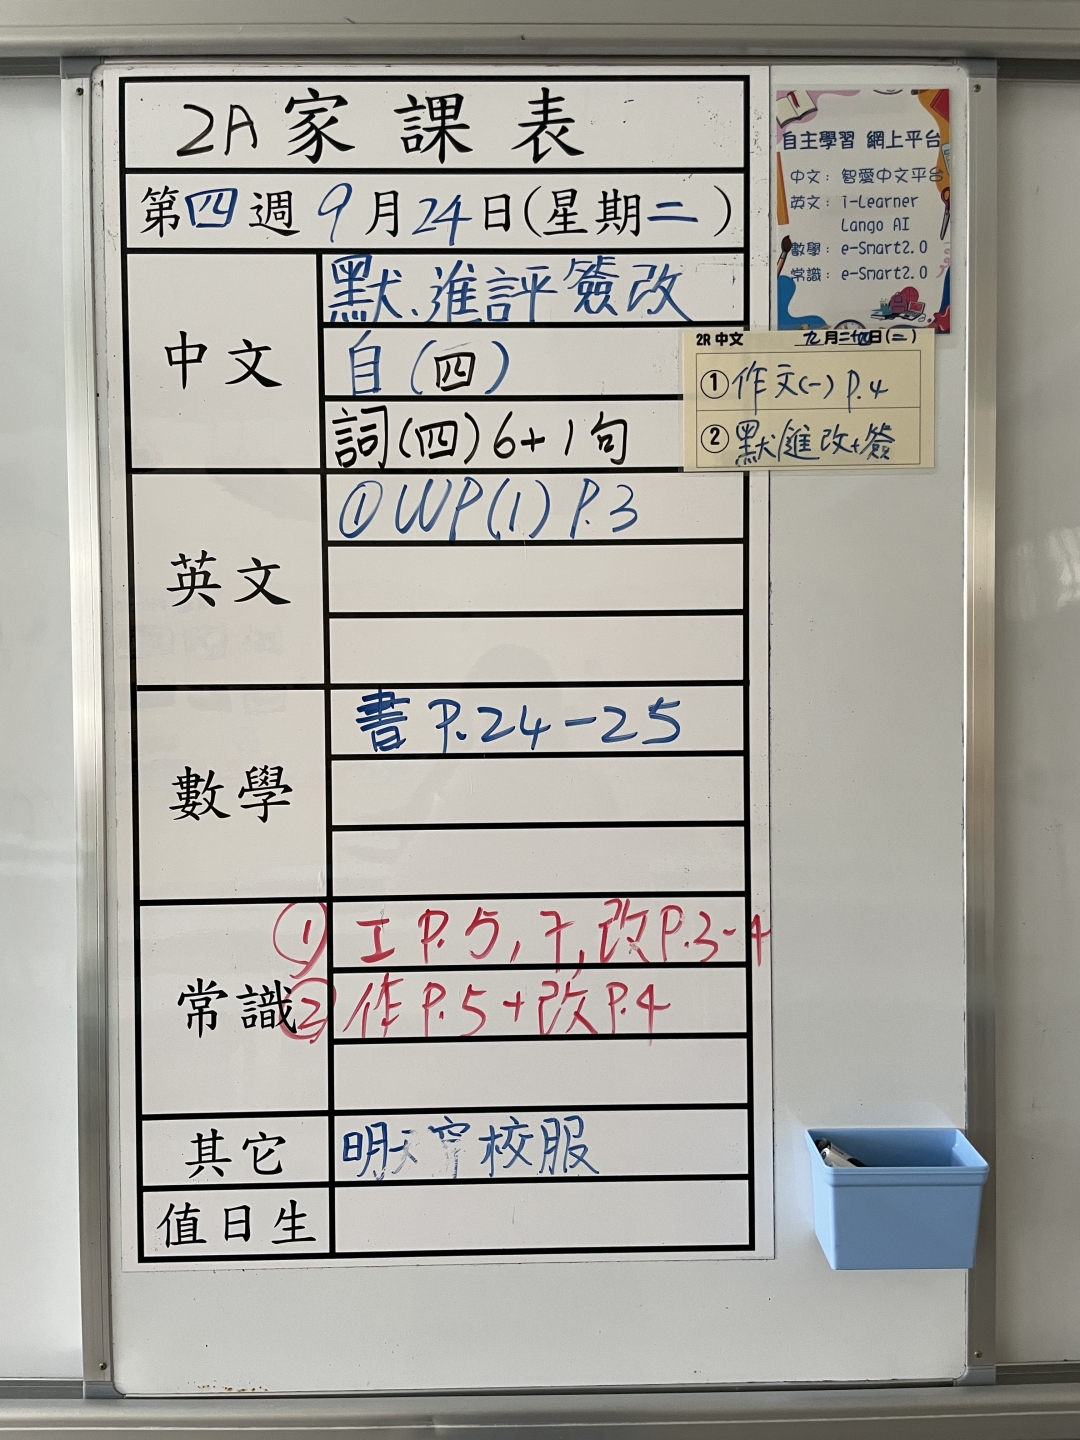 2A 家課表
第四週 9月24日(星期二)
中文
默、進評簽改
自(四)
詞(四)6+1句
英文
①WP(1) P.3
數學
書 P.24-25
常識
① 工 P.5, 7, 改P.3-4
② 作 P.5+改P.4
其它
明天穿校服
值日生
自主學習 網上平台
中文: 智愛中文平台
英文: i-Learner
Lango AI
數學: e-Smart2.0
常識: e-Smart2.0
2R 中文 九月二十四日(二)
① 作文(一) P.4
② 默進改+簽